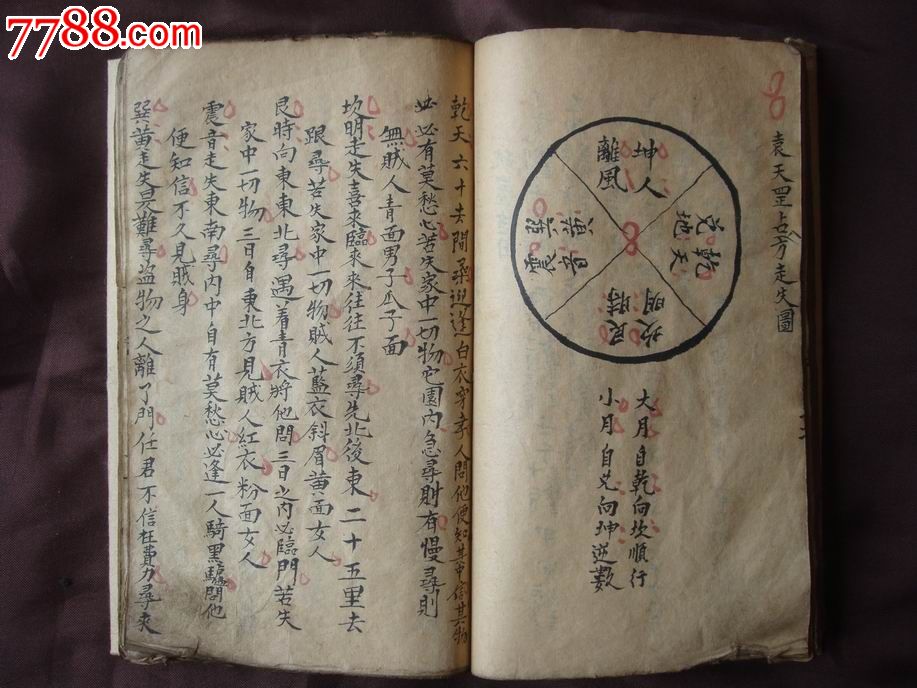 7788.com
袁天罡占方走失圖
坤人
離風
乾天
兌地
坎明
艮時
震音
巽黃
大月自乾向坎順行
小月自兌向坤逆數
乾天六十去間桑迎逢白衣穿孝人問他便知其中信其物
必有莫愁心若失家中一切物宅園內急尋則有慢尋則
無賊人青面男子瓜子面
坎明走失喜來臨來來往往不須尋先北後東二十五里去
跟尋若失家中一切物賊人藍衣斜眉黄面女人
艮時向東東北尋遇着青衣將他問三日之內必臨門若失
家中一切物三日自東北方見賊人紅衣粉面女人
震音走失東南尋內中自有莫愁心必逢一人騎黑驢問他
便知信不久見賊身
巽黃走失是難尋盜物之人離了門任君不信枉費力尋來